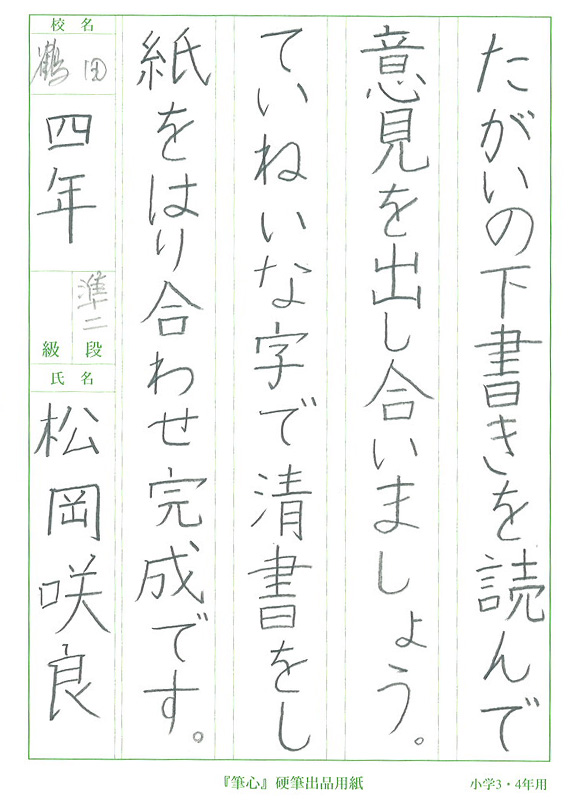 たがいの下書きを読んで
意見を出し合いましょう。
ていねいな字で清書をし
紙をはり合わせ完成です。
校名
鶴田
四年
準二
級段
氏名
松岡咲良
『筆心』硬筆出品用紙
小学3・4年用